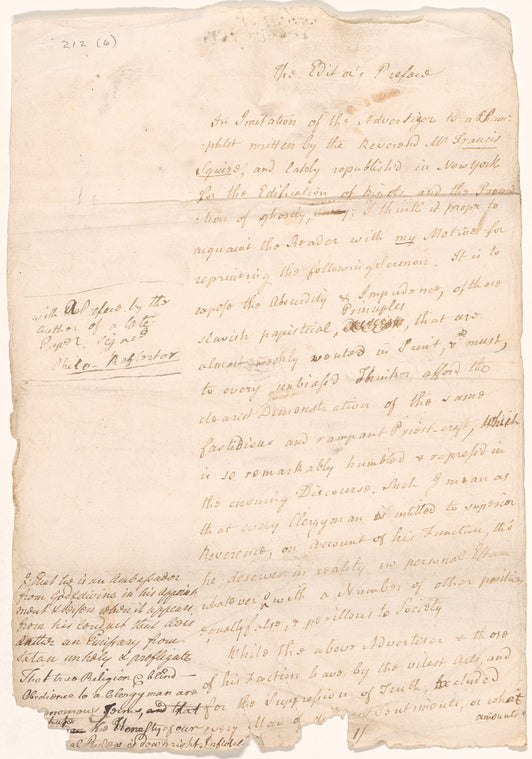 212 (6)
The Editor's Preface
In Imitation of the Advertiser to a Pam-
phlet written by the Reverend Mr Francis
Squire, and lately republish'd in New York
for the Edification of Bigots and the Promo
tion of ghostly, I think it proper to
acquaint the Reader with my Motives for
reprinting the following Sermon. It is to
expose the Absurdity & Impudence, of those
slavish papistical, Principles that are
almost weekly vented in Print, & must,
to every unbiass'd Thinker, afford the
clearest Demonstration of the same
fastidious and rampant Priest-craft, which
is so remarkably humbled & repress'd in
the ensuing Discourse. Such I mean as
that every Clergyman is intitled to superior
Reverence, on account of his Function, tho
he deserves in reality no personal Esteem
whatever, with a Number of other positions
equally false, & perillous to Society
While the above Advertiser & those
of his Faction have by the vilest Arts, and
for the Suppression of Truth, excluded
every Man of Sentiments, or what
amounts
with a Preface by the
Author of a late
Paper, signed
Philo-Refractor
That he is an Ambassador
from God divine in his appoint
ment & Person when it appears
from his conduct that he is
rather an Emissary from
Satan unholy & profligate
That true Religion & blind
Obedience to a Clergyman are
Terms, and that
the Honesty of our
Rulers as downright Infidels